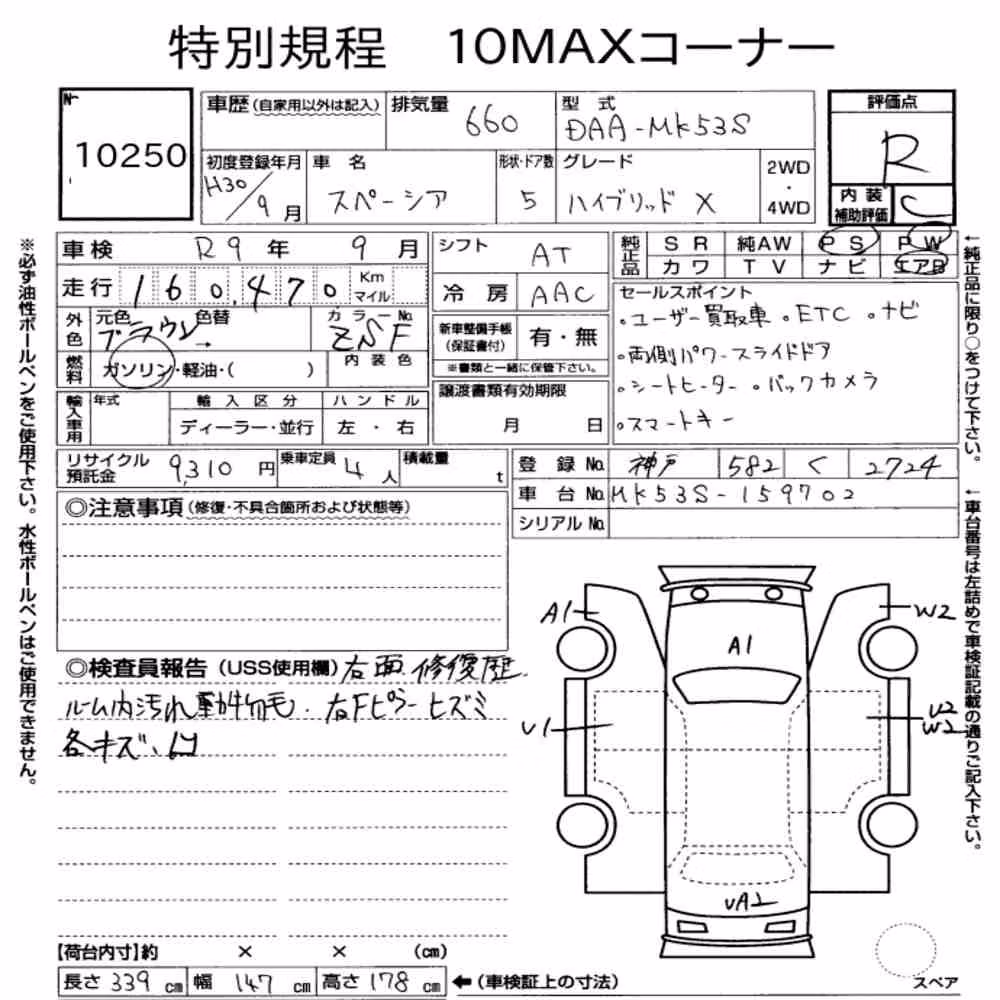 特別規程 10MAXコーナー
No
10250
車歴 (自家用以外は記入)
排気量 660
型式 DAA-MK53S
初度登録年月 H30/9月
車名 スペーシア
形状・ドア数 5
グレード ハイブリッド X
2WD・4WD
評価点 R
内装補助評価 C
※必ず油性ボールペンをご使用下さい。水性ボールペンはご使用できません。
車検 R9年 9月
走行 160,470 Km マイル
外色 元色 ブラウン→ 色替
カラーNo. ZSF
燃料 ガソリン・軽油・( )
内装色
輸入車用 年式
輸入区分 ディーラー・並行
ハンドル 左・右
リサイクル預託金 9,310円
乗車定員 4人
積載量 t
シフト AT
冷房 AAC
新車整備手帳(保証書付) 有・無
※書類と一緒に保管下さい。
譲渡書類有効期限
月 日
純正品 SR 純AW PS PW
カワ TV ナビ エアB
セールスポイント
・ユーザー買取車 ・ETC ・ナビ
・両側パワースライドドア
・シートヒーター ・バックカメラ
・スマートキー
登録No. 神戸 582 く 2724
車台No. MK53S-159702
シリアルNo.
←純正品に限り○をつけて下さい。
←車台番号は左詰めで車検証記載の通りご記入下さい。
◎注意事項(修復・不具合箇所および状態等)
◎検査員報告(USS使用欄) 右面 修復歴
ルーム内汚れ動物毛. 右Fピラーヒズミ
各キズ、凹
A1
W2
A1
U1
U2
W2
UA2
スペア
【荷台内寸】約 × × (cm)
長さ 339cm 幅 147cm 高さ 178cm ←(車検証上の寸法)